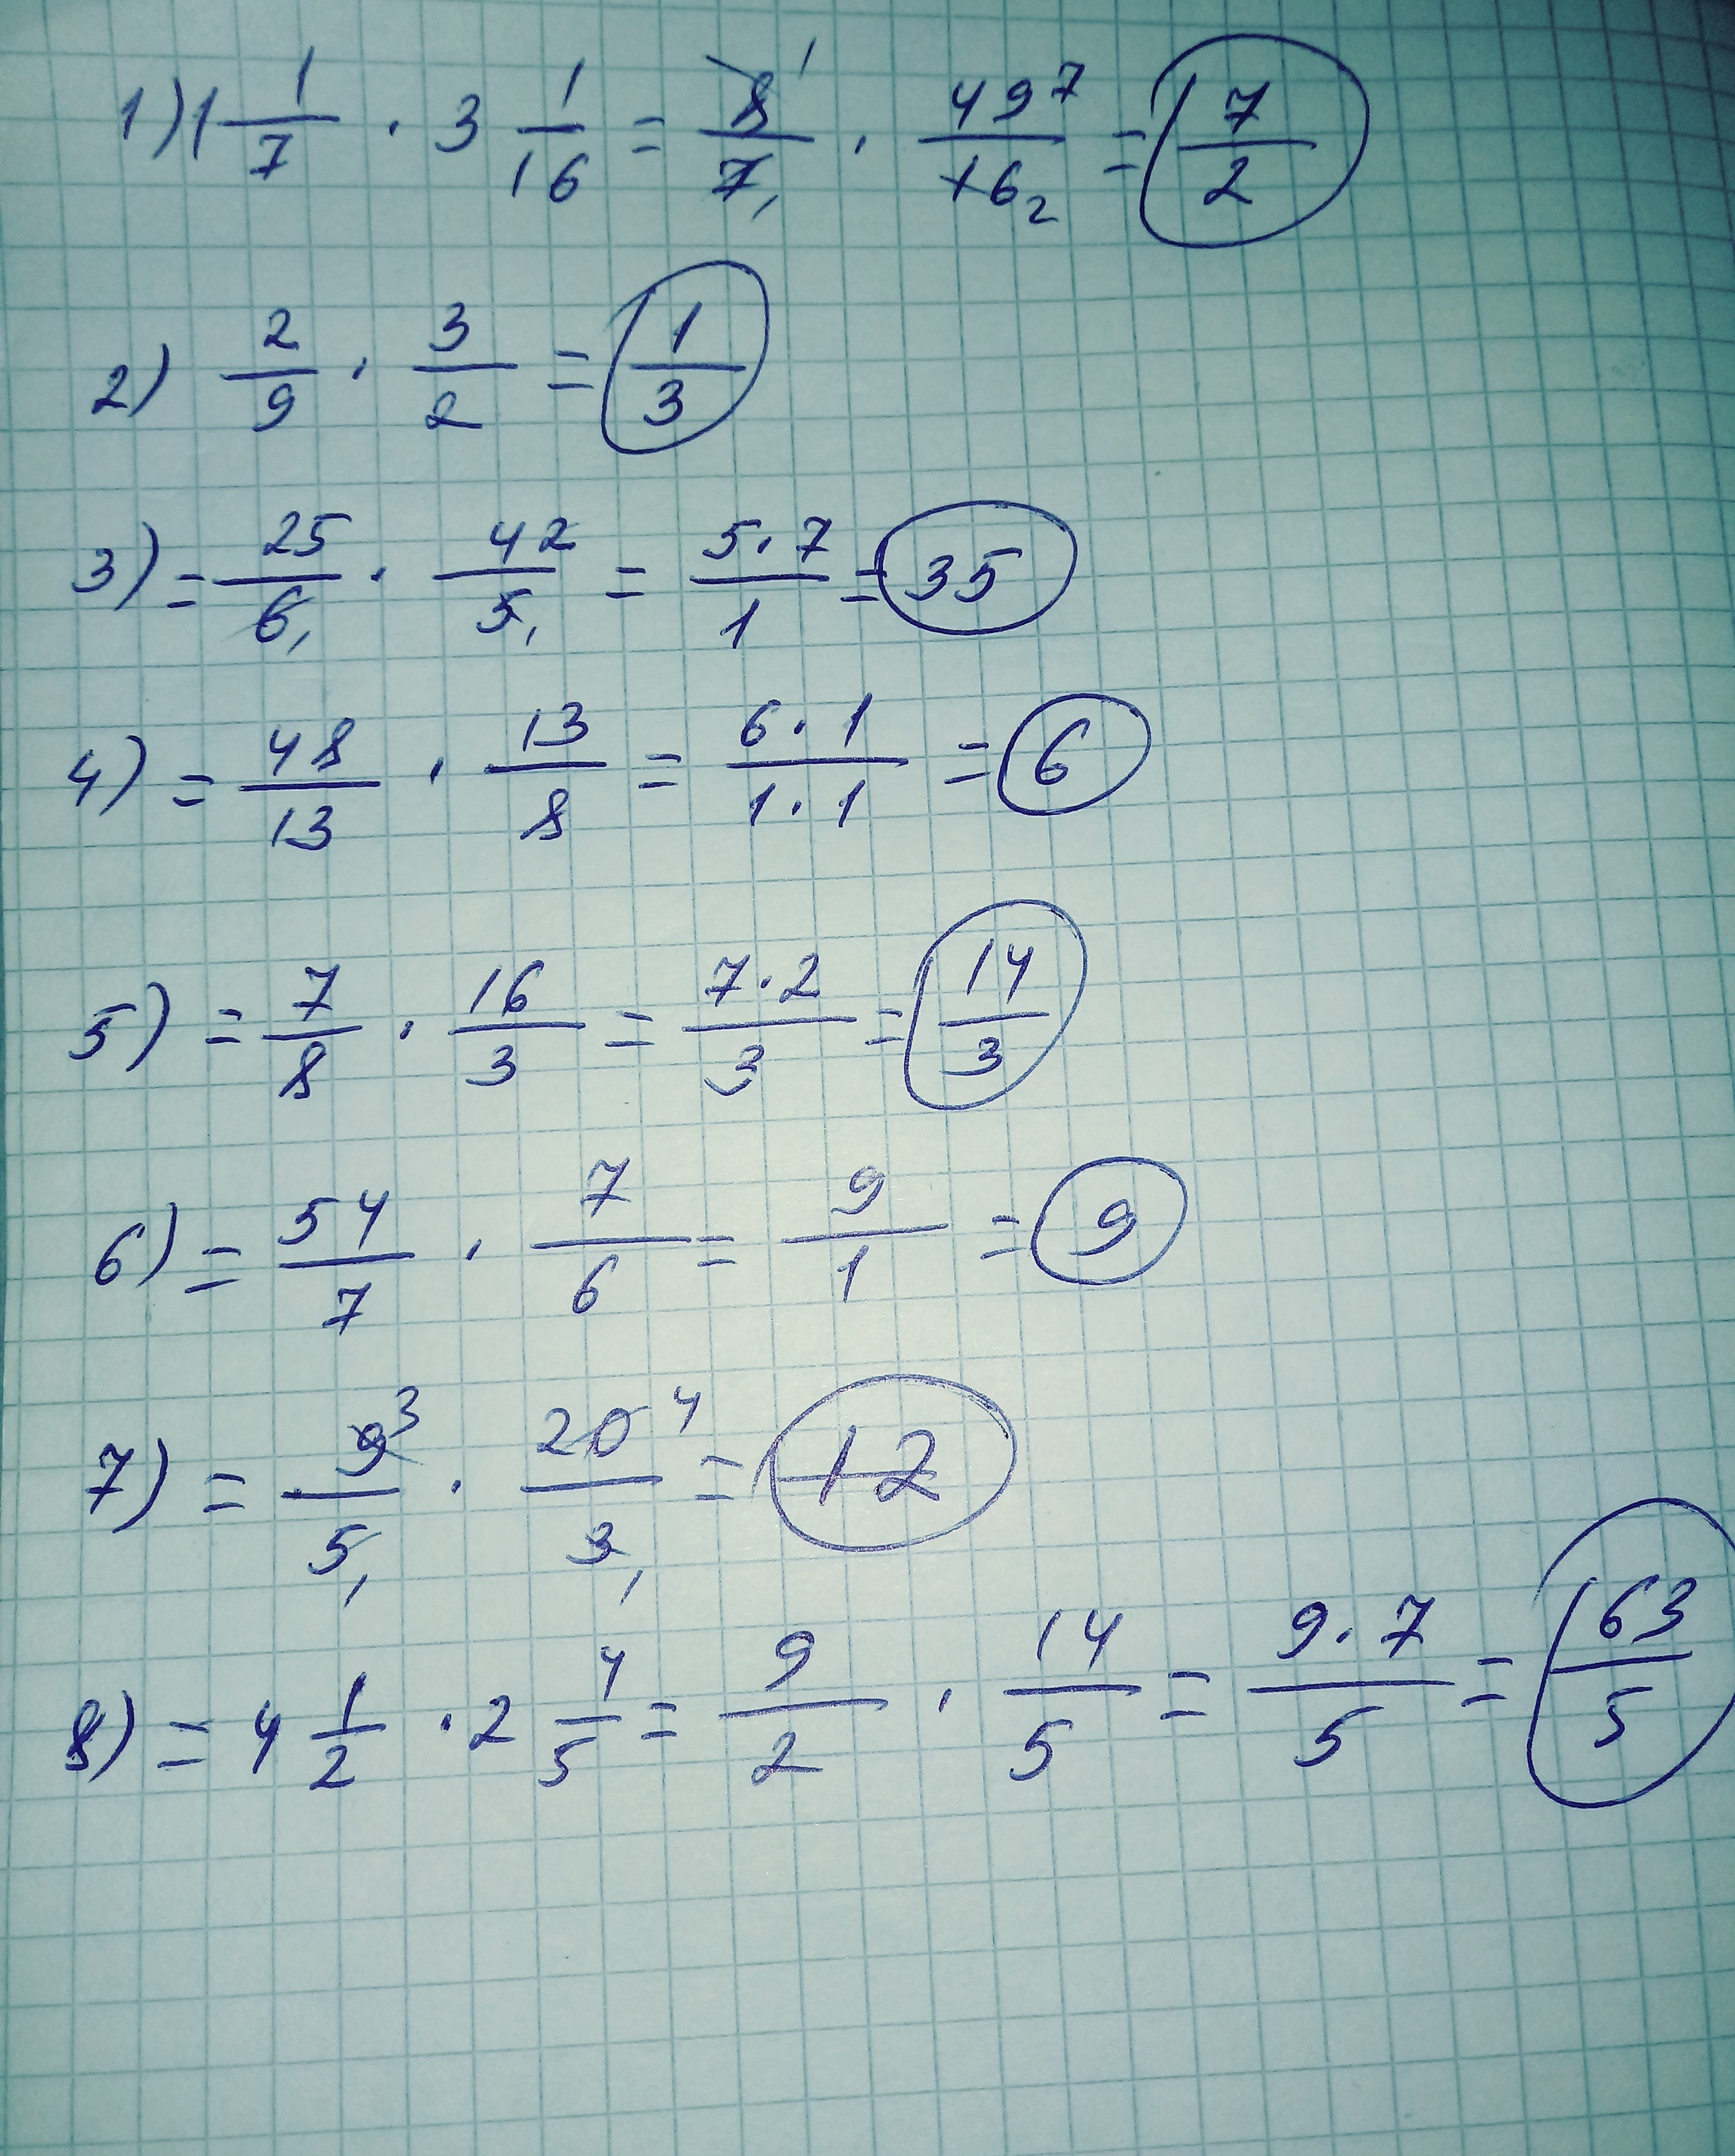 1) 1 1/7 · 3 1/16 = 8¹/7₁ · 49⁷/16₂ = 7/2
2) 2/9 · 3/2 = 1/3
3) = 25/6₁ · 42/5₁ = 5·7/1 = 35
4) = 48/13 · 13/8 = 6·1/1·1 = 6
5) = 7/8 · 16/3 = 7·2/3 = 14/3
6) = 54/7 · 7/6 = 9/1 = 9
7) = 9³/5₁ · 20⁴/3₁ = 12
8) = 4 1/2 · 2 4/5 = 9/2 · 14/5 = 9·7/5 = 63/5